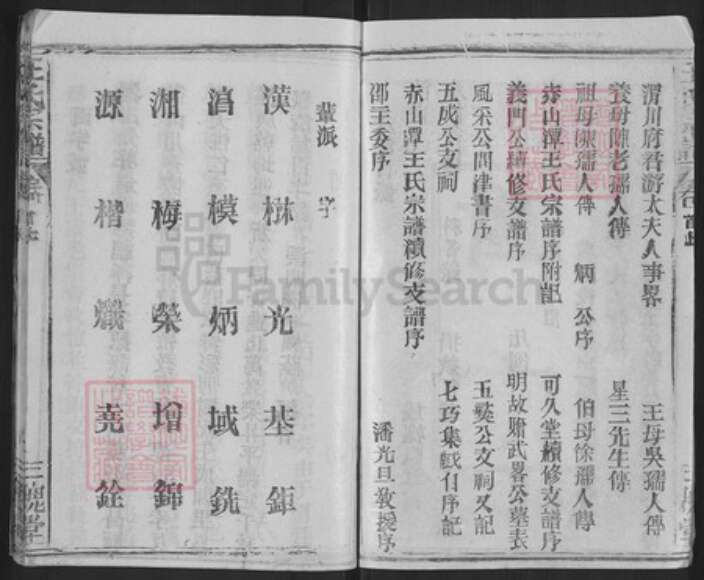 渭川府君游太夫人事畧　王母吳孺人傳
養母陳老孺人傳　星三先生傳
祖母陳孺人傳　炳公序　伯母徐孺人傳
赤山潭王氏宗譜序附記　可久堂續修支譜序
義門公續修支譜序　明故贈武畧公墓表
風采公問津書序　五奕公支祠又記
五成公支祠　七巧集戲台序記
赤山潭王氏宗譜續修支譜序
邵主委序　潘光旦教授序
輩派字
漢楙光基鉅
滄模炳域銑
湘梅榮增錦
源楷熾堯銓
王氏宗譜
三槐堂
FamilySearch